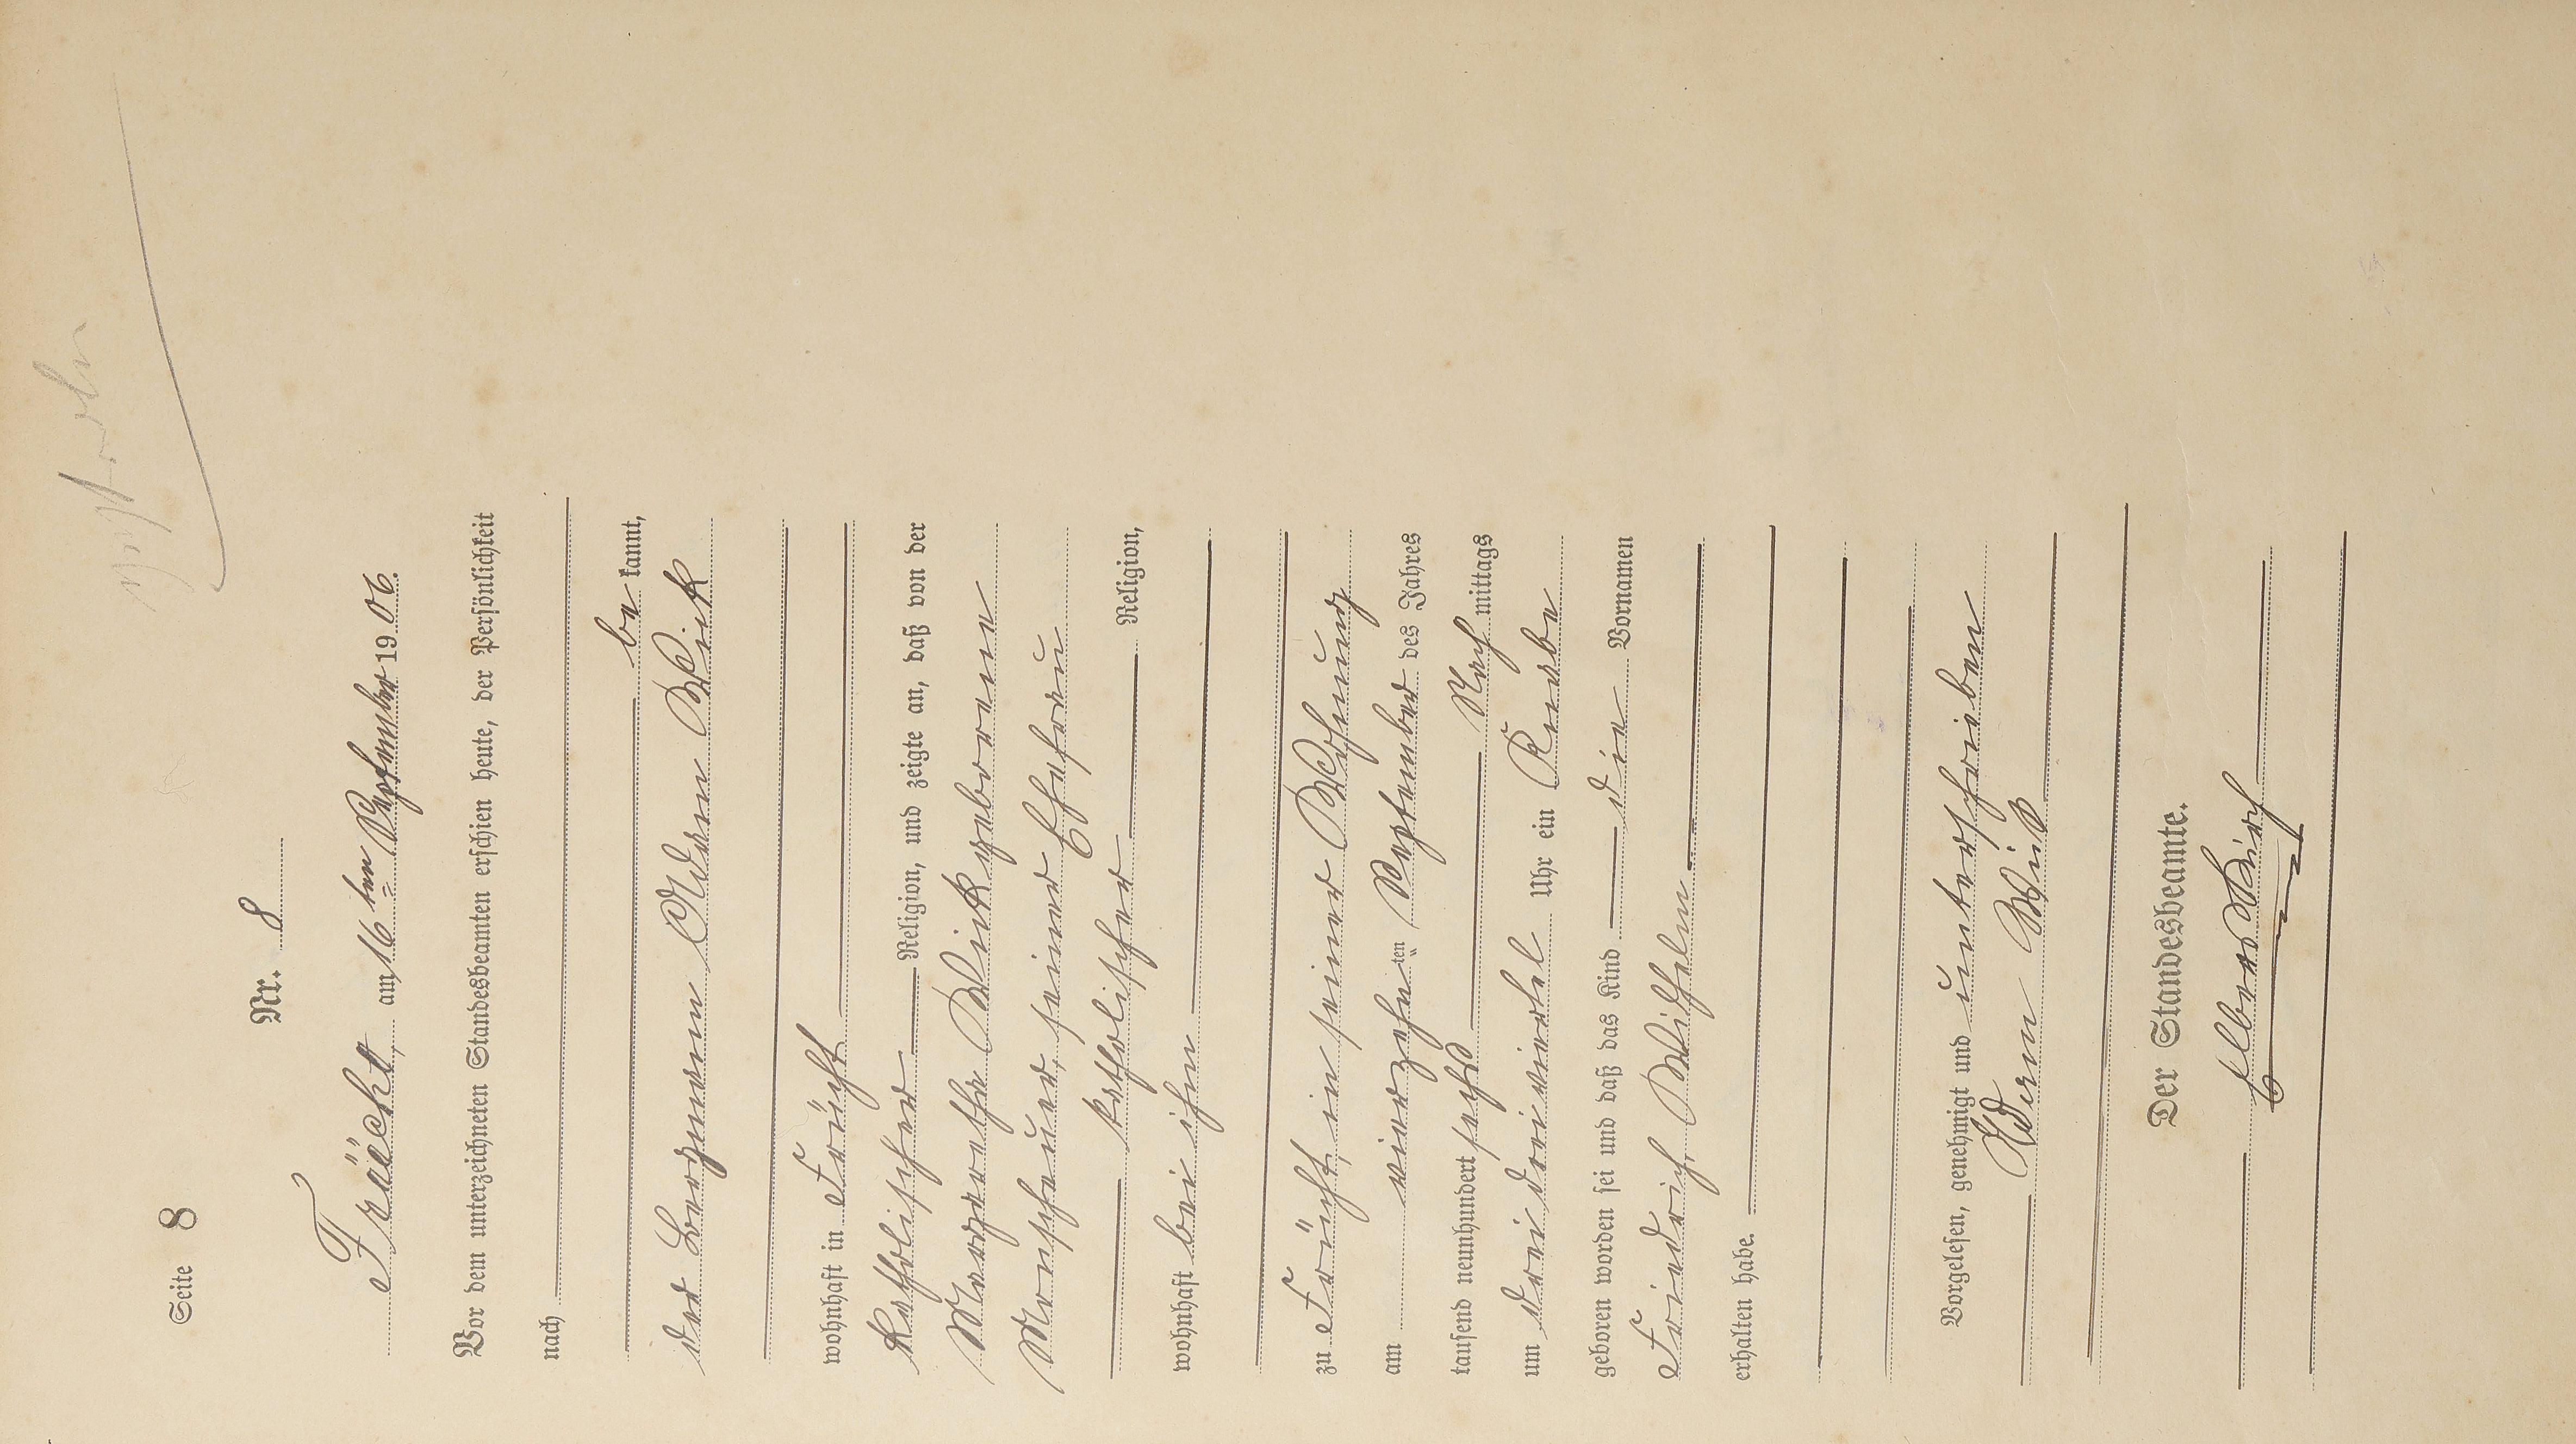 Seite 8
Nr. 8
Frücht, am 16ten September 1906.
Vor dem unterzeichneten Standesbeamten erschien heute, der Persönlichkeit
nach
be kannt,
der Bergmann Adam Wick
wohnhaft in Frücht
katholischer Religion, und zeigte an, daß von der
Margarethe Wick geborene
Monschauer, seiner Ehefrau
katholischer Religion,
wohnhaft bei ihm
zu Frücht, in seiner Wohnung
am vierzehnten September des Jahres
tausend neunhundert sechs Nach mittags
um drei dreiviertel Uhr ein Knabe
geboren worden sei und daß das Kind die Vornamen
Friedrich Wilhelm
erhalten habe.
Vorgelesen, genehmigt und unterschrieben
Adam Wick
Der Standesbeamte.